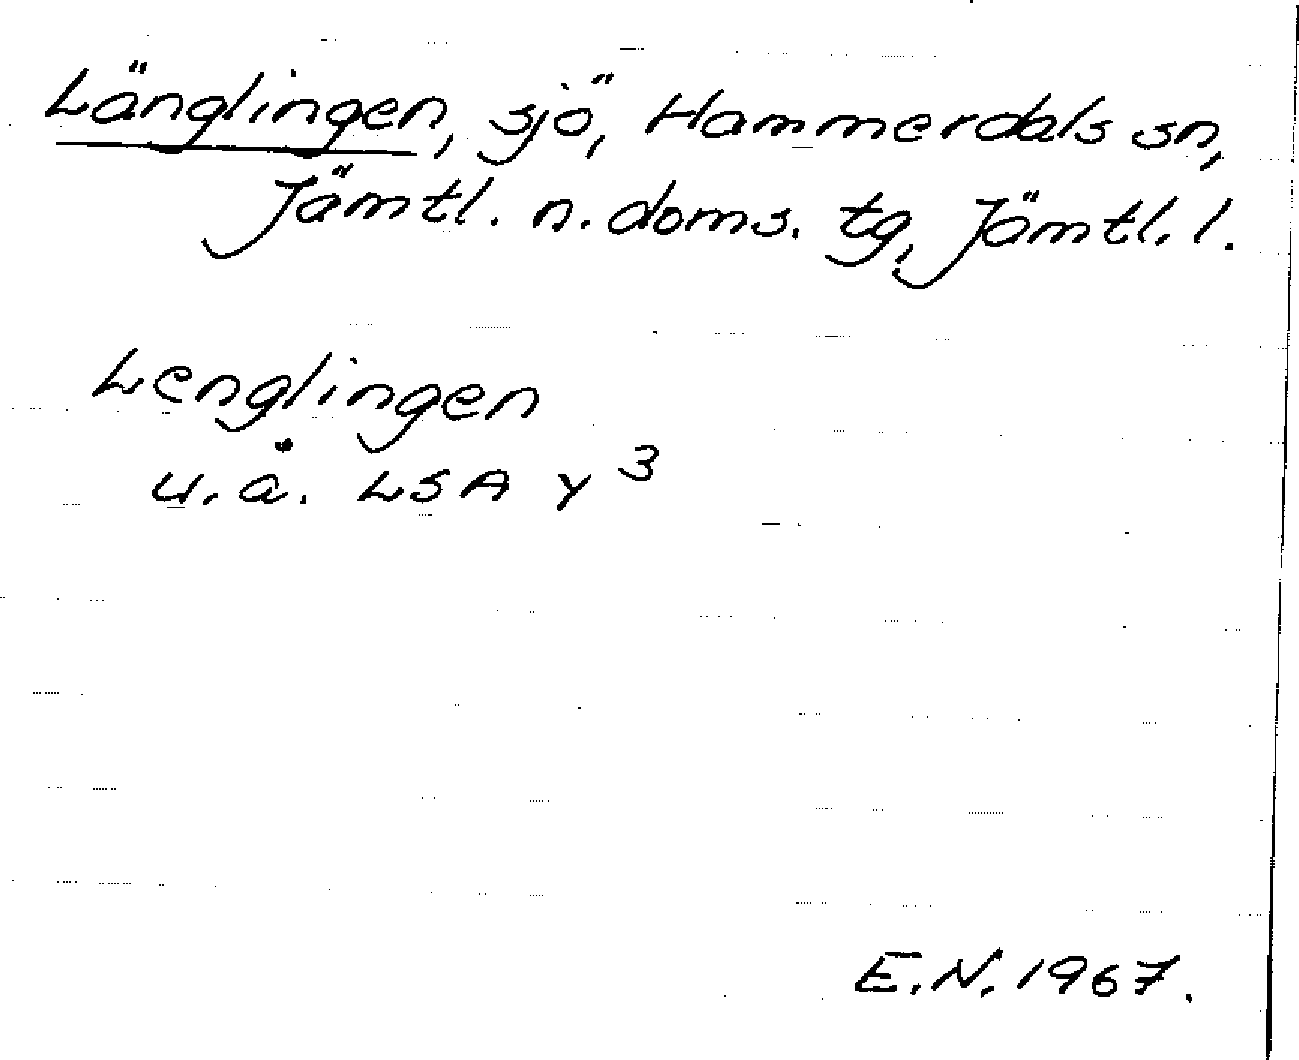 Länglingen, sjö, Hammerdals sn,
Jämtl. n. doms. tg, Jämtl. l.
Lenglingen
u.å. LSA Y 3
E.N. 1967.